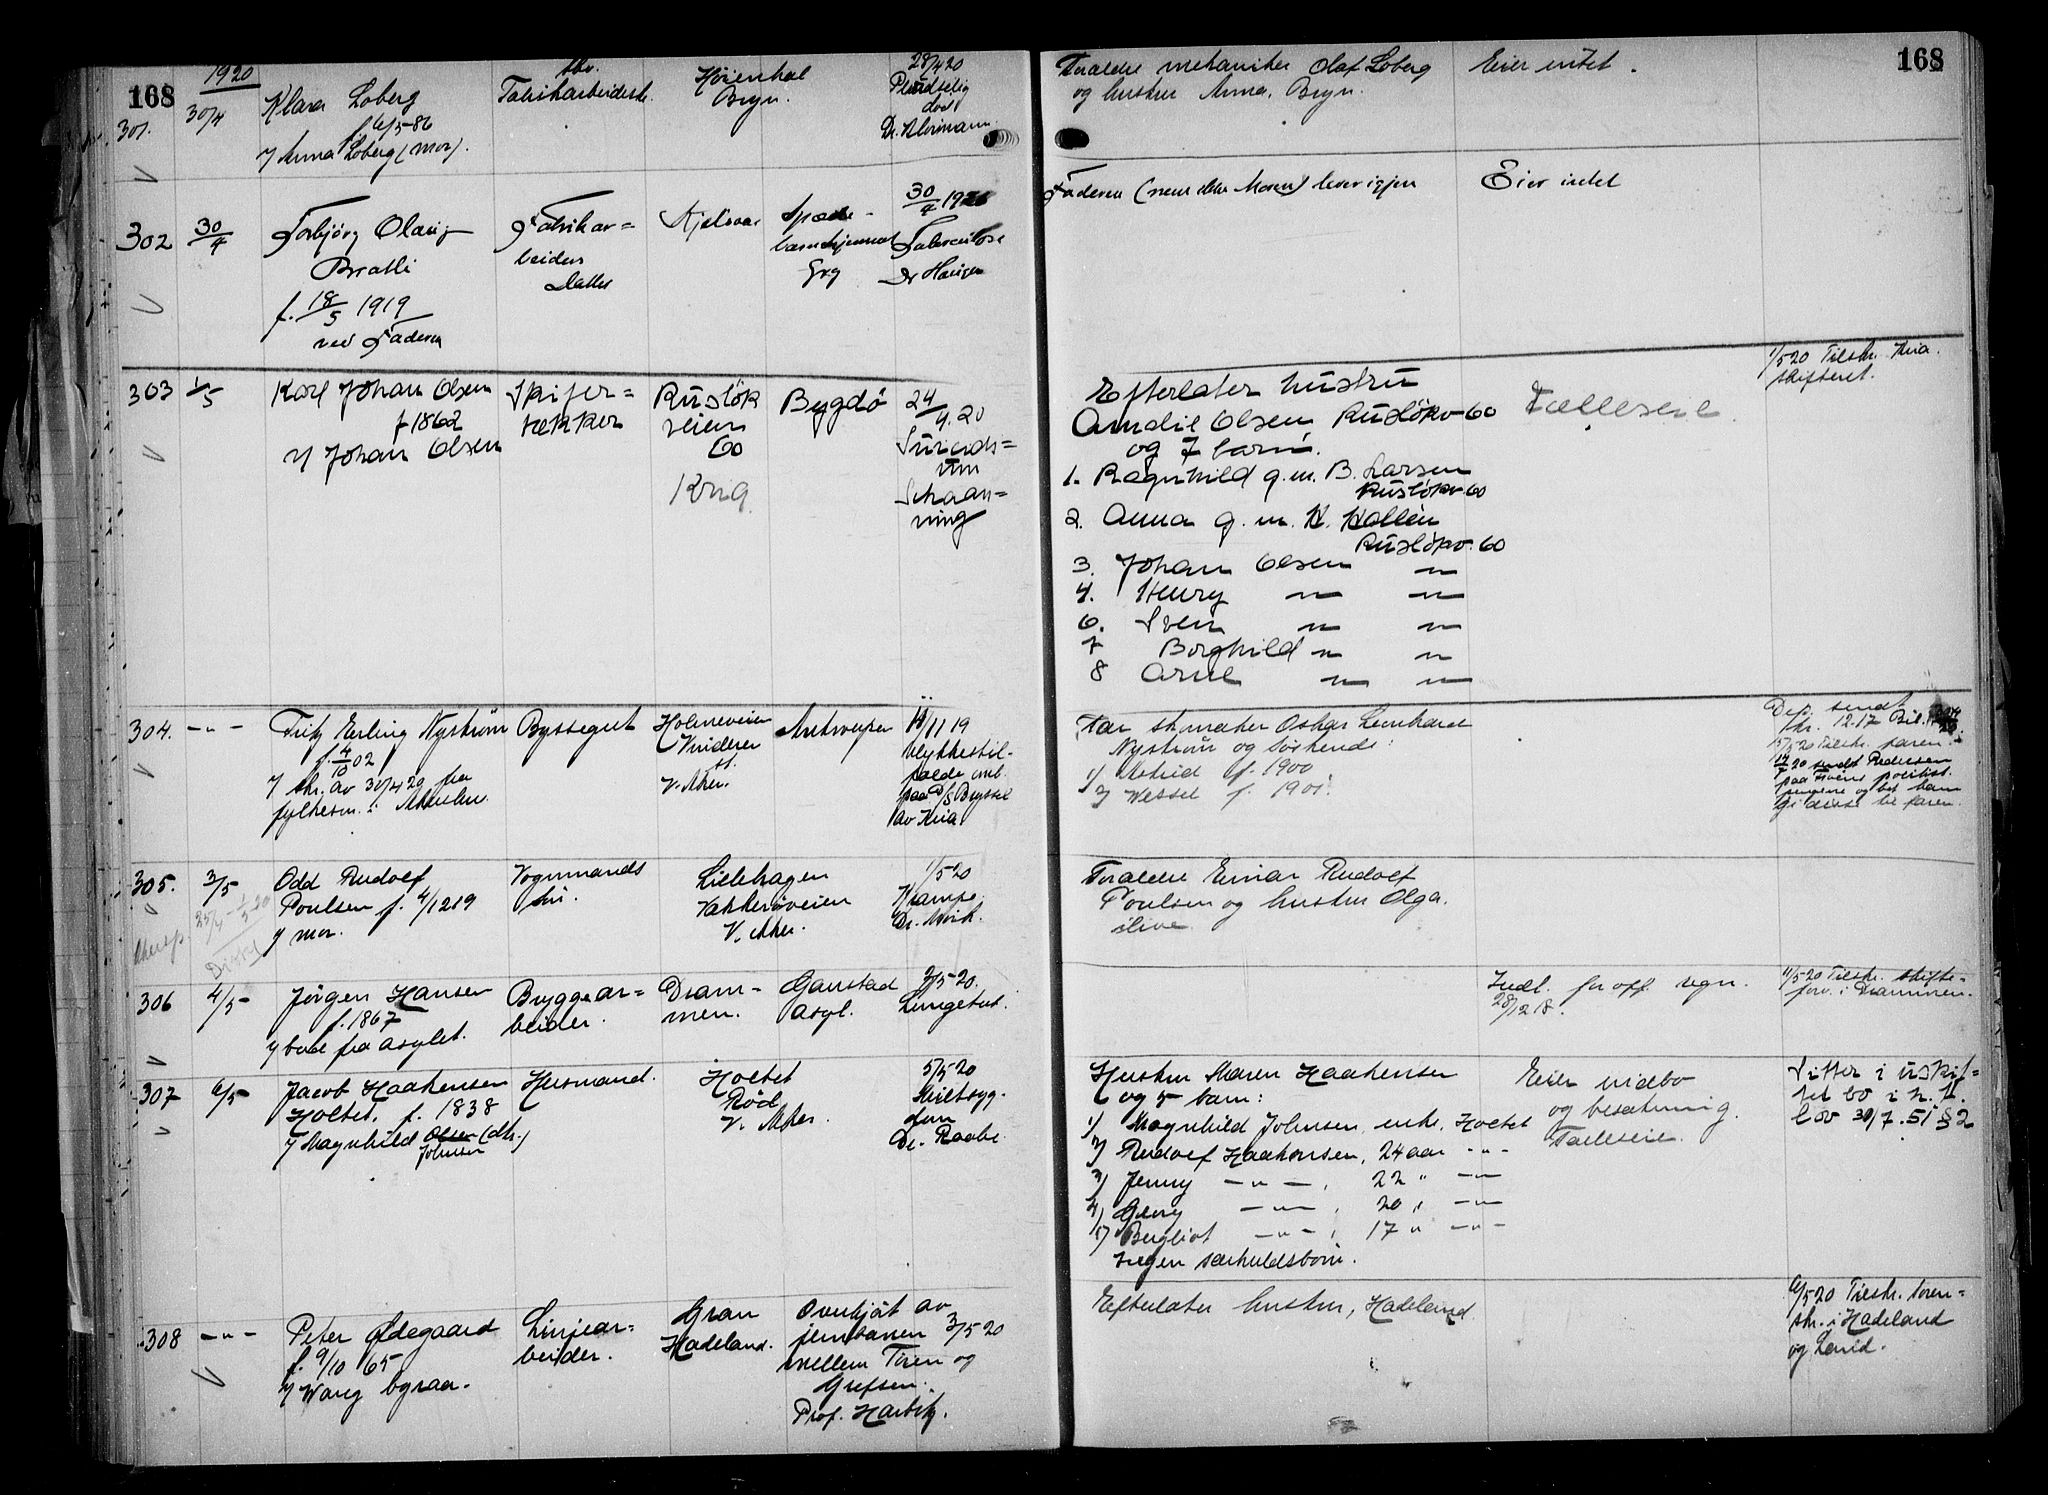 168
1920
301.
30/4
Klara Loberg
f. 6/5-86
v/ Anna Loberg (mor).
Fabrikarbeidersk.
Høienhal
Bryn.
28/4 20
Pludselig
død
Forældre mekaniker Olaf Loberg
og hustru Anna, Bryn.
Eier intet.
168
302
30/4
Torbjørg Olaug
Bratli
f. 18/5 1919
ved Faderen
Fabrikar=
beiders
datter
Kjelsaas
Spæde-
barnshjemmet
Grg
30/4 1920
Tuberculose
Dr Hansen
Faderen (men ikke Moren) lever igjen
Eier intet
303
1/5
Karl Johan Olsen
f 1862
v/ Johan Olsen
Skifer=
tækker
Rusløk
veien
60
Krig
Bygdø
24/4. 20
Suicidi=
um
Schaan=
ning
Efterlater hustru
Amalie Olsen Rusløkv 60
og 7 barn:
1. Ragnhild g.m. B. Larsen
Rusløkv 60
2. Anna g.m. K. Hallén
Rusløkv. 60
3. Johan Olsen — " —
4. Henry — " — — " —
6. Sven — " — — " —
7 Borghild — " — — " —
8 Arne — " — — " —
Fælleseie
1/5 20 Tilskr. Kria.
skifteret.
304.
— " —
Fritz Erling Nystrøm
f. 4/10 02
v/ skr. av 30/4 20 fra
fylkesm. i Akershus.
Byssegut
Holmeveien
Vinderen
st.
V. Aker.
Antwerpen
11/11 19
Ulykkestil-
fælde omb.
paa D/S Bryssel
av Kria.
Far skomaker Oskar Leonhard
Nystrøm og søskende:
1) Astrid f. 1900
2) Wessel f. 1901.
Dep. sendt
skr. 12.17
15/5 20 Tilskr. faren
305.
3/5
Odd Rudolf
Poulsen f. 4/12 19
v/ mor.
Vognmands
søn.
Lillehagen
Vækkerøveien
V. Aker.
1/5 20
Krampe.
Forældre Einar Rudolf
Poulsen og hustru Olga.
ilive.
306
4/5
Jørgen Hansen
f. 1867
v/ bud fra asylet.
Bryggear=
beider.
Dram-
men.
Gaustad
asyl.
3/5 20.
Lungetub.
Indl. for off. regn.
28/12 18.
11/5 20 Tilskr. skifte=
forv. i Drammen.
307
6/5
Jacob Haakensen
Holtet, f. 1838
v/ Magnhild Olsen (dtr.)
Johnsen
Husmand.
Holtet
Rød
V. Aker.
5/5 20
Hjertesyg-
dom
Dr. Raabe.
Hustru Maren Haakensen
og 5 barn:
1) Magnhild Johnsen, enke, Holtet
2) Rudolf Haakensen, 24 aar — " —
3) Jenny — " —, 22 " — " —
4) Georg — " —, 20 " — " —
5) Bergliot — " —, 17 " — " —
Ingen særkuldsbørn.
Eier indbo
og besætning.
Fælleseie.
Sitter i uskif=
tet bo i h. t.
lov 30/7. 51 § 2
308
— " —
Peter Ødegaard
f. 9/10 65
v/ Wang byraa.
Linjear=
beider.
Gran
Hadeland.
Overkjørt av
jernbanen 3/5 20
mellem Tøien og
Grefsen.
Prof. Harbitz.
Efterlater hustru, Hadeland
6/5 20 Tilskr. soren=
skr. i Hadeland
og Land.